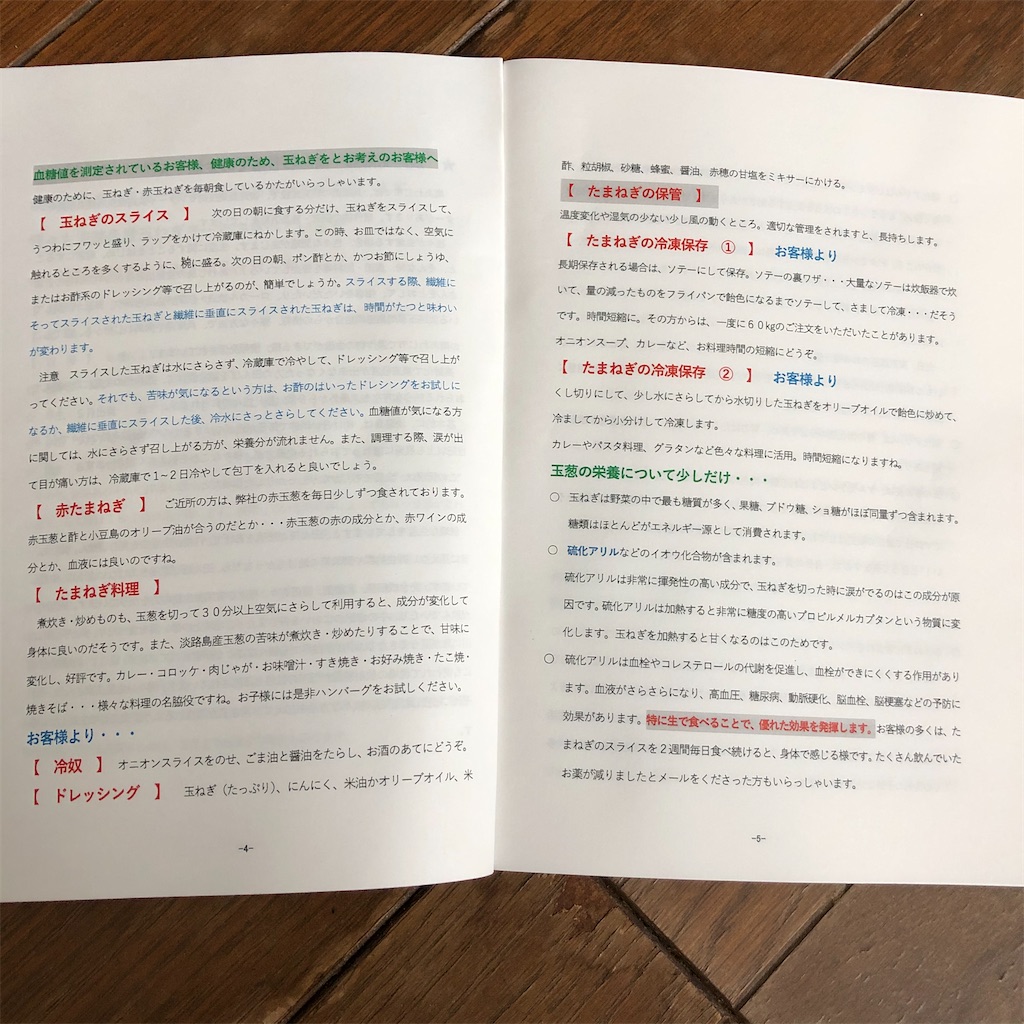 血糖値を測定されているお客様、健康のため、玉ねぎをとお考えのお客様へ
健康のために、玉ねぎ・赤玉ねぎを毎朝食しているかたがいらっしゃいます。
【 玉ねぎのスライス 】 次の日の朝に食する分だけ、玉ねぎをスライスして、
うつわにフワッと盛り、ラップをかけて冷蔵庫にねかします。この時、お皿ではなく、空気に
触れるところを多くするように、椀に盛る。次の日の朝、ポン酢とか、かつお節にしょうゆ、
またはお酢系のドレッシング等で召し上がるのが、簡単でしょうか。スライスする際、繊維に
そってスライスされた玉ねぎと繊維に垂直にスライスされた玉ねぎは、時間がたつと味わい
が変わります。
注意 スライスした玉ねぎは水にさらさず、冷蔵庫で冷やして、ドレッシング等で召し上が
ってください。それでも、苦味が気になるという方は、お酢のはいったドレシングをお試しに
なるか、繊維に垂直にスライスした後、冷水にさっとさらしてください。血糖値が気になる方
に関しては、水にさらさず召し上がる方が、栄養分が流れません。また、調理する際、涙が出
て目が痛い方は、冷蔵庫で1~2日冷やして包丁を入れると良いでしょう。
【 赤たまねぎ 】 ご近所の方は、弊社の赤玉葱を毎日少しずつ食されております。
赤玉葱と酢と小豆島のオリーブ油が合うのだとか・・・赤玉葱の赤の成分とか、赤ワインの成
分とか、血液には良いのですね。
【 たまねぎ料理 】
煮炊き・炒めものも、玉葱を切って30分以上空気にさらして利用すると、成分が変化して
身体に良いのだそうです。また、淡路島産玉葱の苦味が煮炊き・炒めたりすることで、甘味に
変化し、好評です。カレー・コロッケ・肉じゃが・お味噌汁・すき焼き・お好み焼き・たこ焼・
焼きそば・・・様々な料理の名脇役ですね。お子様には是非ハンバーグをお試しください。
お客様より・・・
【 冷奴 】 オニオンスライスをのせ、ごま油と醤油をたらし、お酒のあてにどうぞ。
【 ドレッシング 】 玉ねぎ(たっぷり)、にんにく、米油かオリーブオイル、米
-4-
酢、粒胡椒、砂糖、蜂蜜、醤油、赤穂の甘塩をミキサーにかける。
【 たまねぎの保管 】
温度変化や湿気の少ない少し風の動くところ。適切な管理をされますと、長持ちします。
【 たまねぎの冷凍保存 ① 】 お客様より
長期保存される場合は、ソテーにして保存。ソテーの裏ワザ・・・大量なソテーは炊飯器で炊
いて、量の減ったものをフライパンで飴色になるまでソテーして、さまして冷凍・・・だそう
です。時間短縮に。その方からは、一度に60㎏のご注文をいただいたことがあります。
オニオンスープ、カレーなど、お料理時間の短縮にどうぞ。
【 たまねぎの冷凍保存 ② 】 お客様より
くし切りにして、少し水にさらしてから水切りした玉ねぎをオリーブオイルで飴色に炒めて、
冷ましてから小分けして冷凍します。
カレーやパスタ料理、グラタンなど色々な料理に活用。時間短縮になりますね。
玉葱の栄養について少しだけ・・・
○ 玉ねぎは野菜の中で最も糖質が多く、果糖、ブドウ糖、ショ糖がほぼ同量ずつ含まれます。
糖類はほとんどがエネルギー源として消費されます。
○ 硫化アリルなどのイオウ化合物が含まれます。
硫化アリルは非常に揮発性の高い成分で、玉ねぎを切った時に涙がでるのはこの成分が原
因です。硫化アリルは加熱すると非常に糖度の高いプロピルメルカプタンという物質に変
化します。玉ねぎを加熱すると甘くなるのはこのためです。
○ 硫化アリルは血栓やコレステロールの代謝を促進し、血栓ができにくくする作用があり
ます。血液がさらさらになり、高血圧、糖尿病、動脈硬化、脳血栓、脳梗塞などの予防に
効果があります。特に生で食べることで、優れた効果を発揮します。お客様の多くは、た
まねぎのスライスを2週間毎日食べ続けると、身体で感じる様です。たくさん飲んでいた
お薬が減りましたとメールをくださった方もいらっしゃいます。
-5-